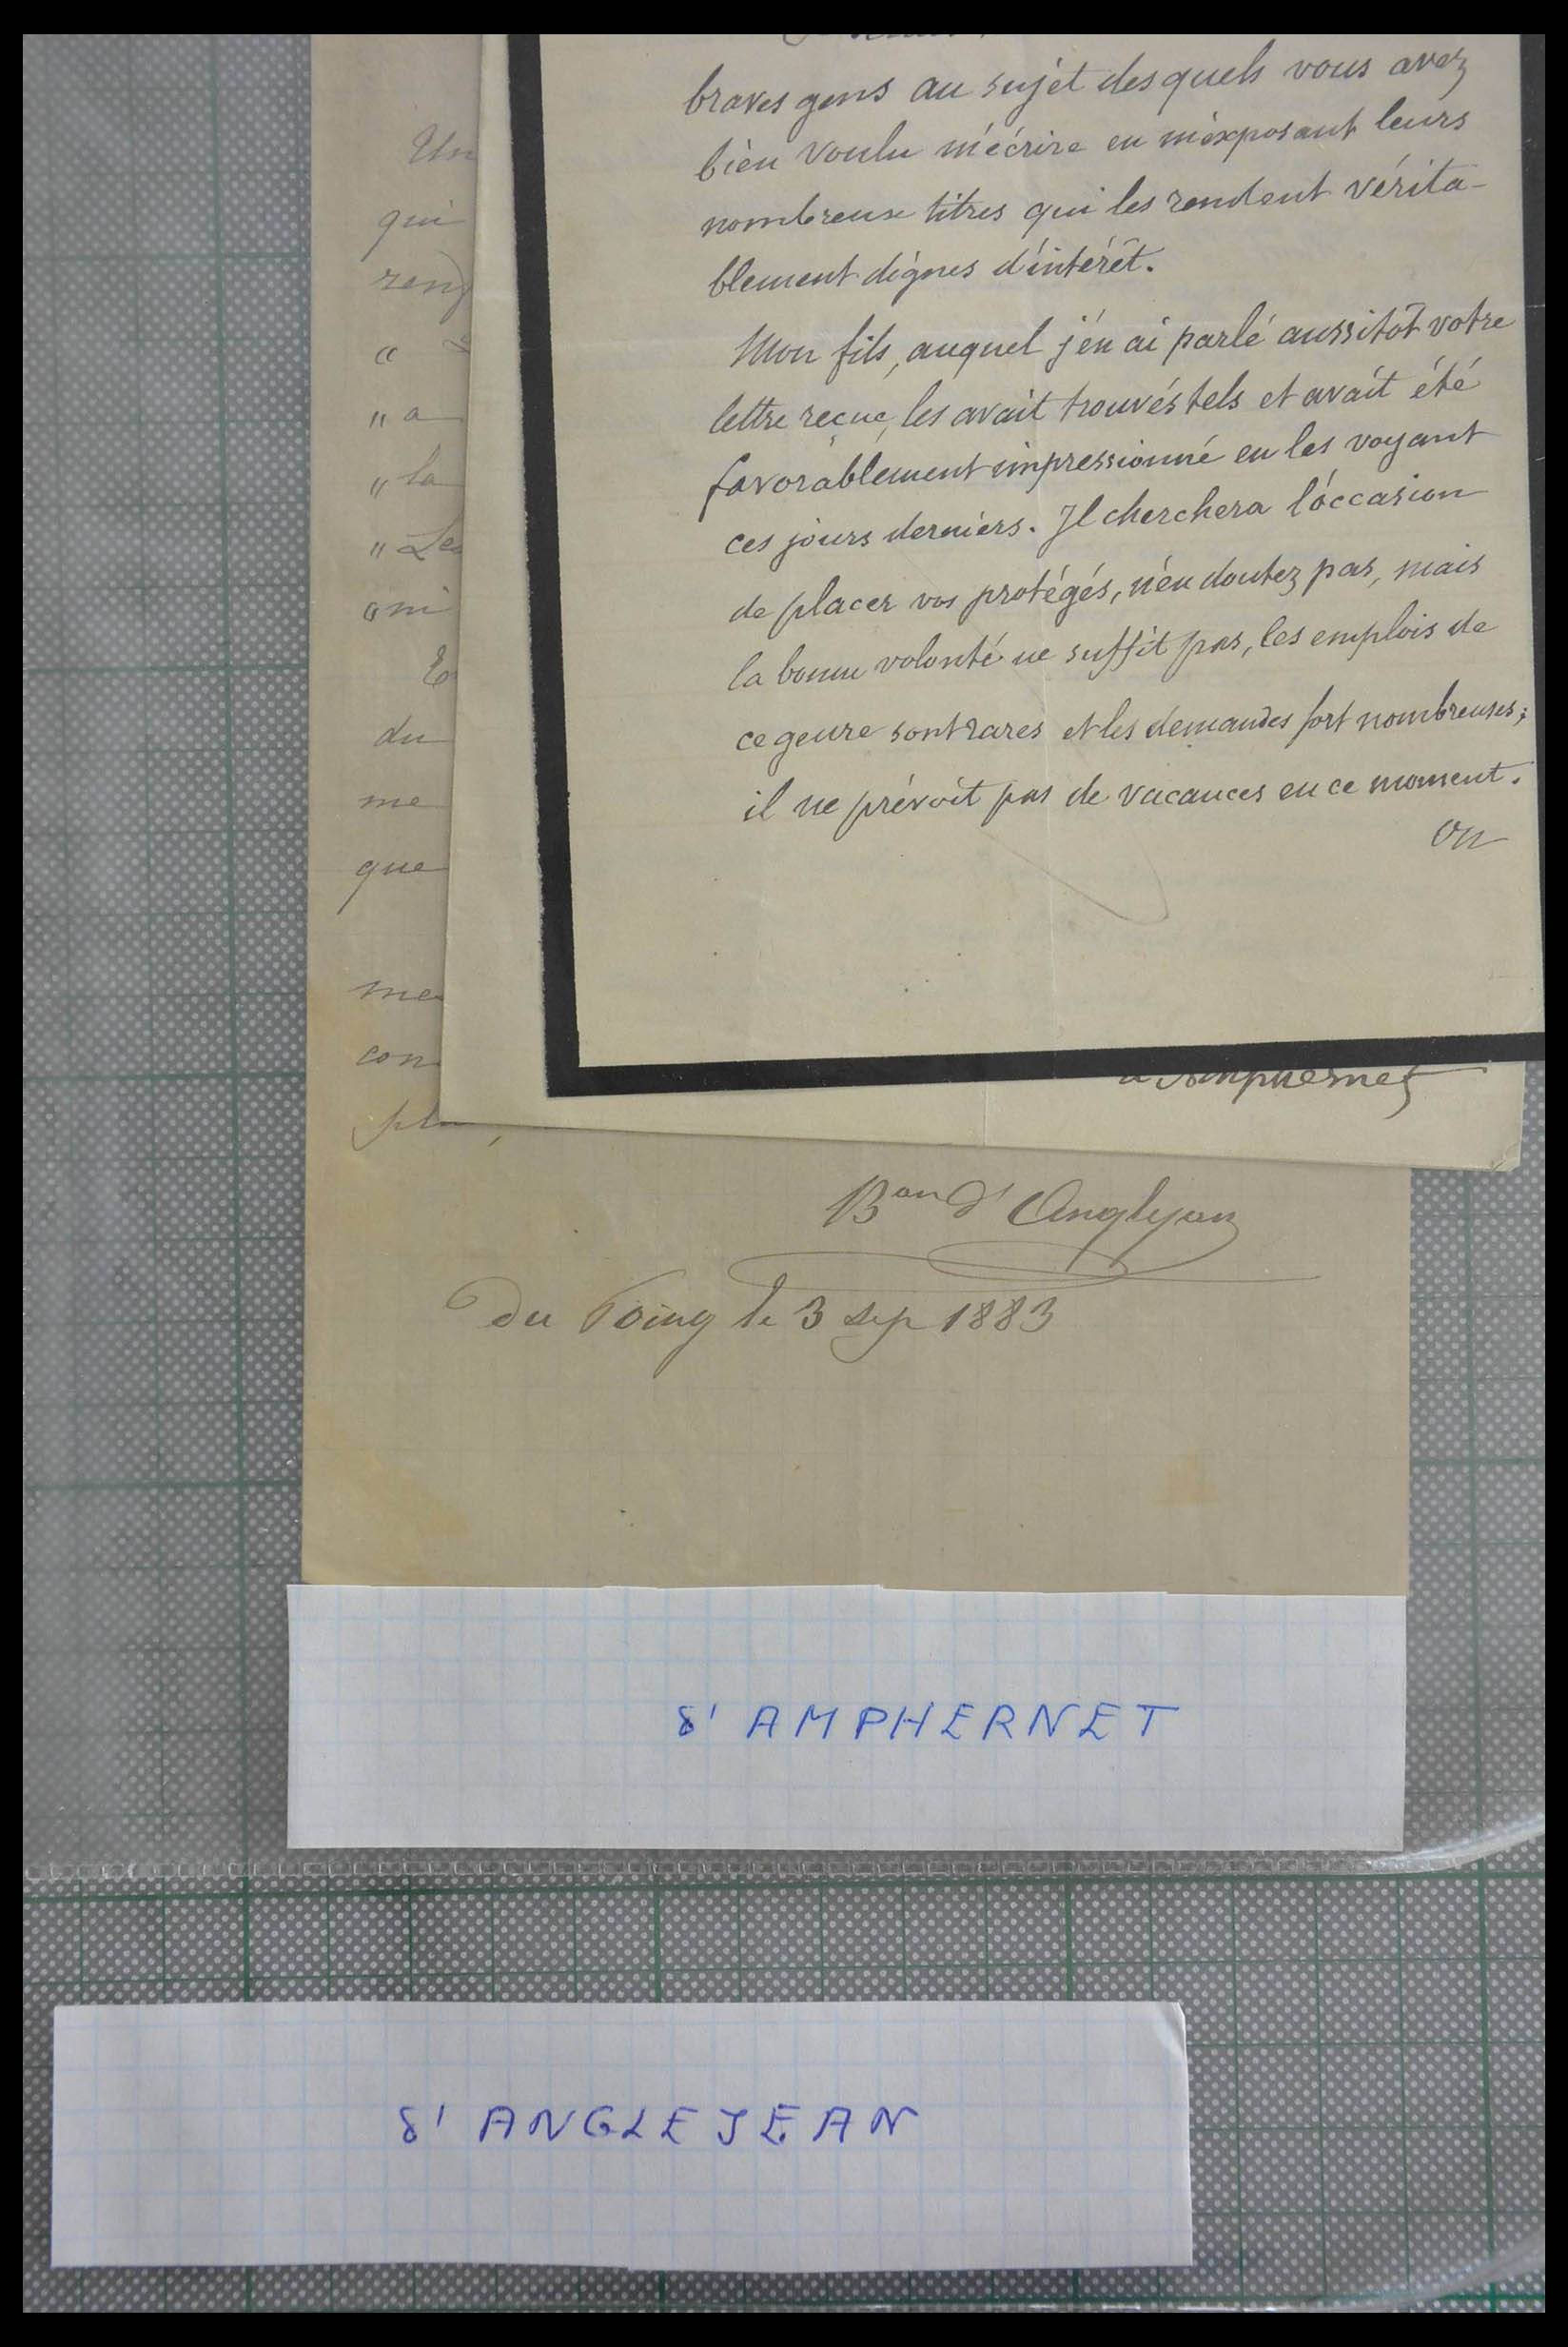 braves gens au sujet desquels vous avez
bien voulu m'écrire en m'exposant leurs
nombreux titres qui les rendent vérita-
blement dignes d'intérêt.
Mon fils, auquel j'en ai parlé aussitôt votre
lettre reçue, les avait trouvés tels et avait été
favorablement impressionné en les voyant
ces jours derniers. Il cherchera l'occasion
de placer vos protégés, n'en doutez pas, mais
la bonne volonté ne suffit pas, les emplois de
ce genre sont rares et les demandes fort nombreuses;
il ne prévoit pas de vacances en ce moment.
on
Un
qui
"a
"la
du
me
que
me
con
d'Amphernet
Bon d'Anglejan
Du le 3 sep 1883
d' AMPHERNET
d' ANGLEJEAN